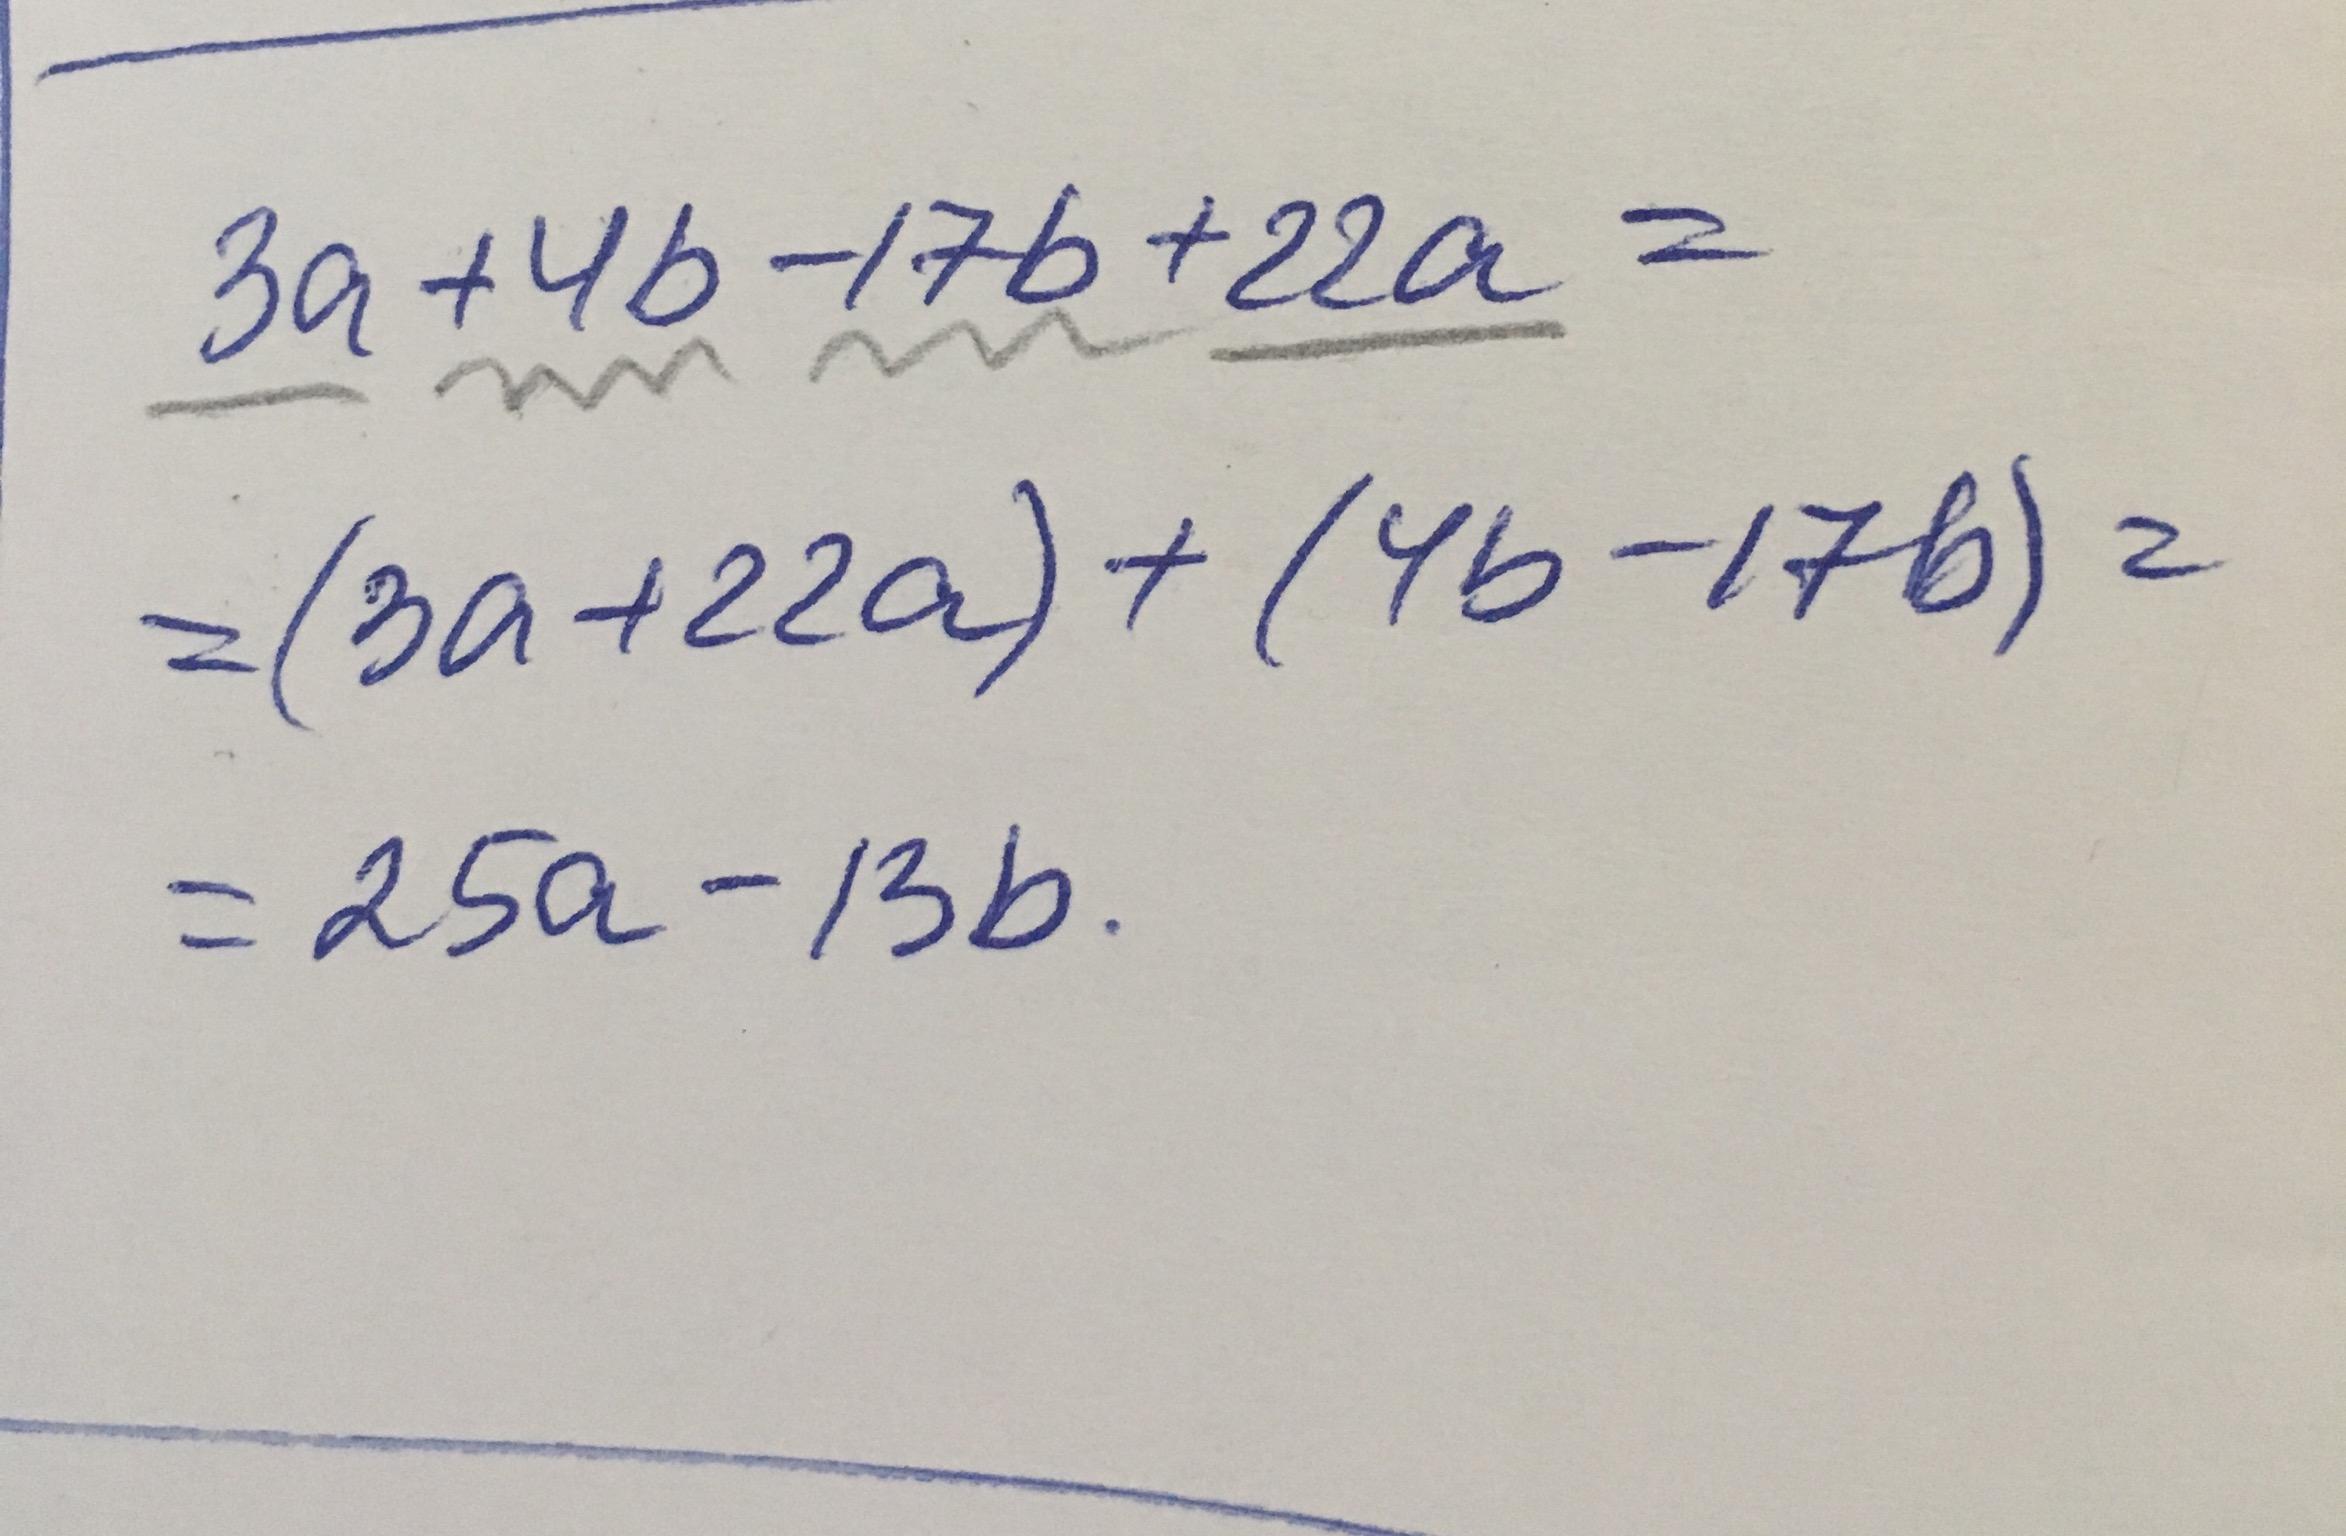 3a+4b-17b+22a=
=(3a+22a)+(4b-17b)=
=25a-13b.